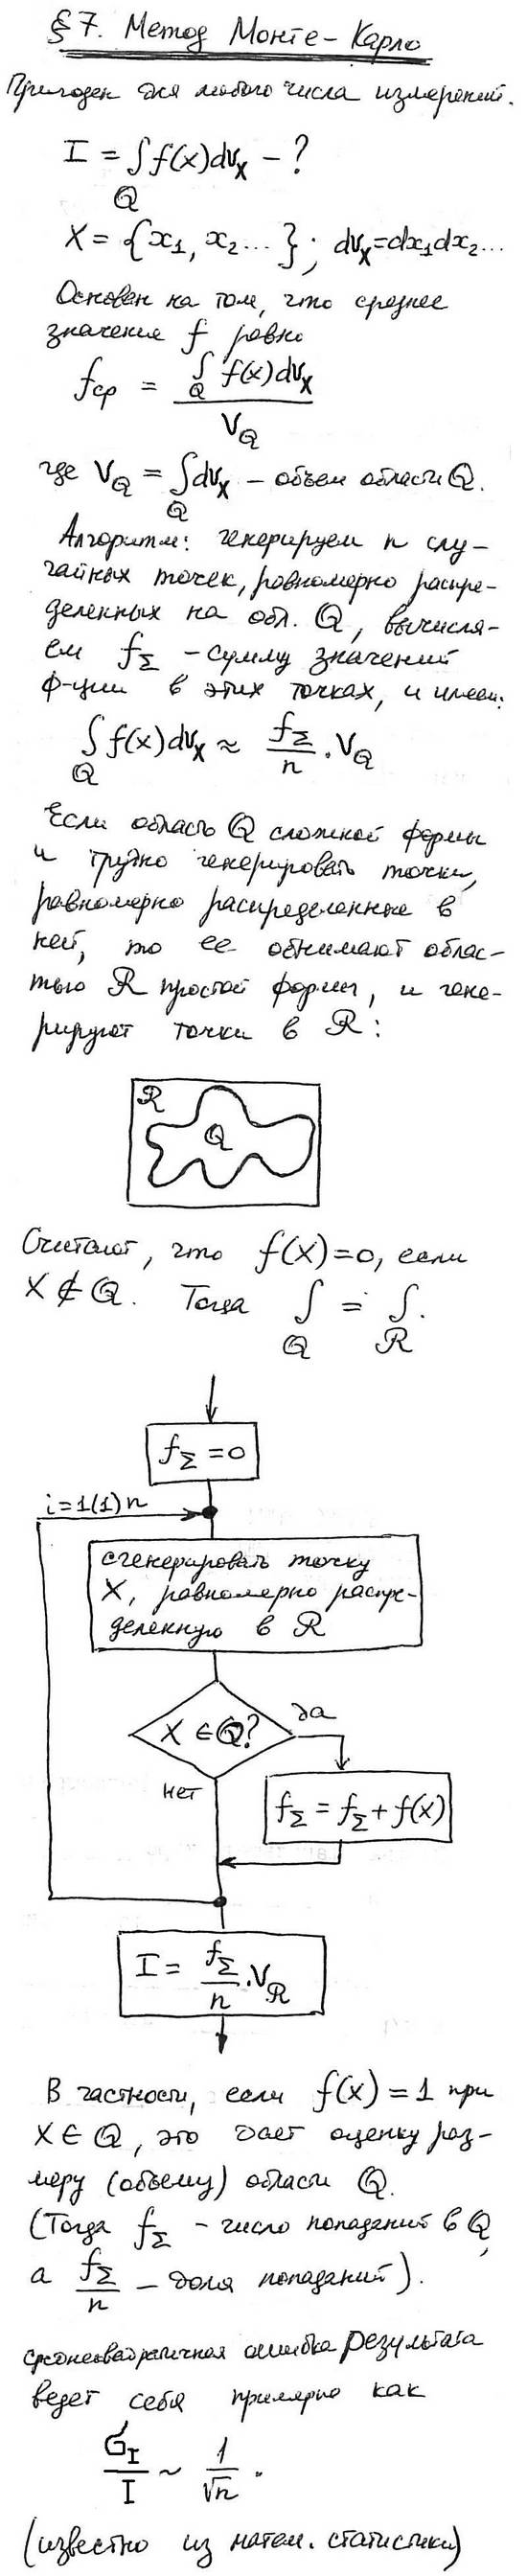 §7. Метод Монте-Карло
Пригоден для любого числа измерений.
I = ∫ f(x)dv_x - ?
Q
X = {x₁, x₂ ... }; dv_x=dx₁dx₂...
Основан на том, что среднее
значение f равно
f_ср = ∫_Q f(x)dv_x / V_Q
где V_Q = ∫_Q dv_x – объем области Q.
Алгоритм: генерируем n слу-
чайных точек, равномерно распре-
деленных на обл. Q, вычисля-
ем f_Σ – сумму значений
ф-ции в этих точках, и имеем:
∫_Q f(x)dv_x ≈ f_Σ/n · V_Q
Если область Q сложной формы
и трудно генерировать точки,
равномерно распределенные в
ней, то ее обнимают облас-
тью R простой формы, и гене-
рируют точки в R:
R
Q
Считают, что f(x)=0, если
X ∉ Q. Тогда ∫_Q = ∫_R.
f_Σ = 0
i=1(1)n
сгенерировать точку
X, равномерно распре-
деленную в R
X ∈ Q?
да
нет
f_Σ = f_Σ + f(x)
I = f_Σ/n · V_R
В частности, если f(x) = 1 при
X ∈ Q, это дает оценку раз-
меру (объему) области Q.
(Тогда f_Σ – число попаданий в Q,
а f_Σ/n – доля попаданий).
Среднеквадратичная ошибка результата
ведет себя примерно как
σ_I/I ~ 1/√n .
(известно из матем. статистики)